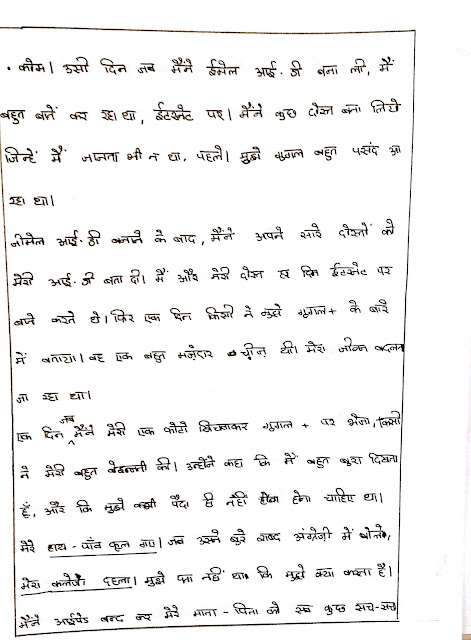 . कोम। उसी दिन जब मैंने ईमेल आई.डी बना ली, मैं
बहुत बातें कर रहा था, ईंटरनेट पर। मैंने कुछ दोस्त बना लिये
जिन्हें मैं जानता भी न था, पहले। मुझे गूगल बहुत पसंद आ
रहा था।
जीमेल आई.डी बनाने के बाद, मैंने अपने सारे दोस्तों को
मेरी आई.डी बता दी। मैं और मेरी दोस्त हर दिन ईंटरनेट पर
बातें करते थे। फिर एक दिन किसी ने मुझे गूगल+ के बारे
में बताया। वह एक बहुत मज़ेदार चीज़ थी। मेरा जीवन बदलता
जा रहा था।
एक दिन जब मैंने मेरी एक फोटो खिचवाकर गूगल + पर भेजा, किसी
ने मेरी बहुत बेइज्जती की। उन्होंने कहा कि मैं बहुत बुरा दिखता
हूँ, और कि मुझे कभी पैदा ही नहीं होना चाहिए था।
मेरे हाथ-पाँव फूल गए। जब उसने बुरे शब्द अंग्रेज़ी में बोले,
मेरा कलेजा दहला। मुझे पता नहीं था कि मुझे क्या करना है।
मैंने आईपेड बन्द कर मेरे माता-पिता को सब कुछ सच-सच